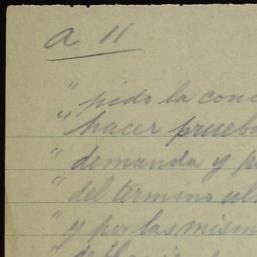 a 11
" pido la conc
" hacer prueba
" demanda y p
" del termino ul
" y por las mism